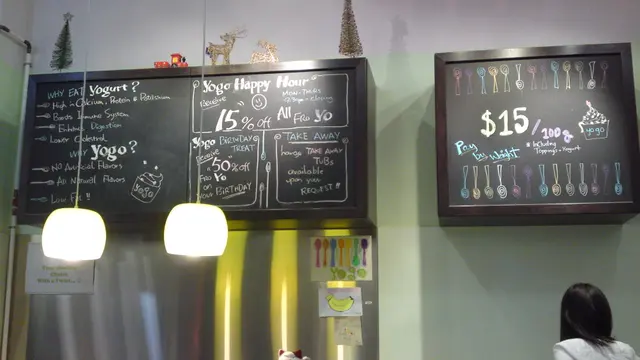 WHY EAT Yogurt?
High in Calcium, Protein & Potassium
Boosts Immune System
Enhance Digestion
Lower Cholesterol
WHY Yogo?
NO Artificial Flavors
All Natural Flavors
Low Fat!!
YOGO
Yogo Happy Hour
Receive
15% off All Fro Yo
MON-THURS
closing
Yogo BIRTHDAY
TREAT
Receive
50% off
Fro
Yo
on
your BIRTHDAY
TAKE AWAY
TAKE AWAY
TUBS
available
upon your
REQUEST!!
$15/100g
* INCLUDING
Toppings + Yogurt
Pay
by Weight
yogo